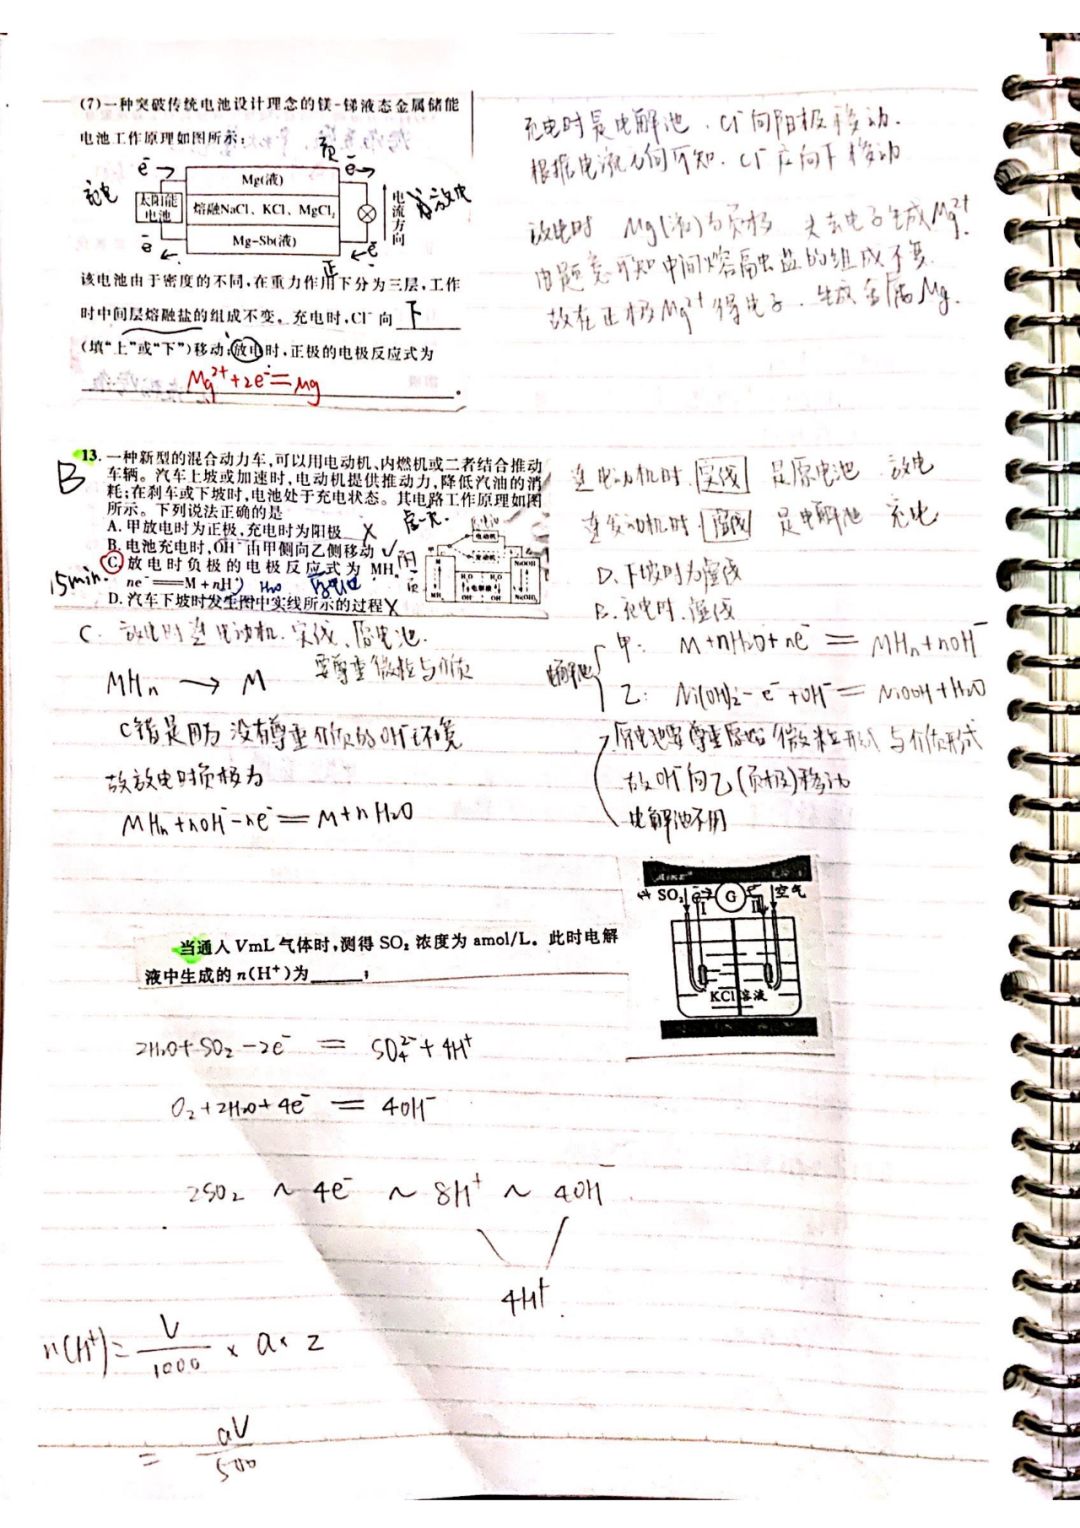 (7)一种突破传统电池设计理念的镁-锑液态金属储能
电池工作原理如图所示:
e⁻
负
e⁻
Mg(液)
太阳能
电池
熔融NaCl、KCl、MgCl₂
电流方向
放电
放电
Mg-Sb(液)
e⁻
e⁻
正
该电池由于密度的不同,在重力作用下分为三层,工作
时中间层熔融盐的组成不变。充电时,Cl⁻向 下
(填“上”或“下”)移动;放电时,正极的电极反应式为
Mg²⁺+2e⁻=Mg 。
充电时是电解池,Cl⁻向阳极移动.
根据电流方向可知,Cl⁻应向下移动
放电时 Mg(液)为负极 失去电子生成Mg²⁺
由题意可知中间熔融盐的组成不变.
故在正极Mg²⁺得电子,生成金属Mg.
B
13.一种新型的混合动力车,可以用电动机、内燃机或二者结合推动
车辆。汽车上坡或加速时,电动机提供推动力,降低汽油的消
耗;在刹车或下坡时,电池处于充电状态。其电路工作原理如图
所示。下列说法正确的是
A. 甲放电时为正极,充电时为阳极 X
B. 电池充电时,OH⁻由甲侧向乙侧移动 ✓
C. 放电时负极的电极反应式为 MHₙ-
ne⁻══M+nH⁺ H₂O
D. 汽车下坡时发生图中实线所示的过程 X
15min.
电动机
发动机
甲
M
MHₙ
H₂O
OH⁻
H₂O
OH⁻
NiOOH
Ni(OH)₂
连电动机时 实线 是原电池 放电
连发动机时 虚线 是电解池 充电
D. 下坡时为虚线
B. 充电时.虚线
电解池
甲: M+nH₂O+ne⁻ = MHₙ+nOH⁻
乙: Ni(OH)₂-e⁻+OH⁻ = NiOOH+H₂O
原电池要尊重原始微粒形式与介质形式
故OH⁻向乙(负极)移动
电解池不用
C. 放电时连电动机.实线、原电池.
要尊重微粒与介质
MHₙ → M
C错是因为没有尊重介质的OH⁻环境
故放电时负极为
MHₙ+nOH⁻-ne⁻=M+nH₂O
SO₂
e⁻
G
e⁻
空气
I
II
KCl溶液
当通入VmL气体时,测得SO₂浓度为amol/L。此时电解
液中生成的n(H⁺)为 ;
2H₂O+SO₂-2e⁻ = SO₄²⁻+4H⁺
O₂+2H₂O+4e⁻ = 4OH⁻
2SO₂ ~ 4e⁻ ~ 8H⁺ ~ 4OH⁻
4H⁺
n(H⁺)= V/1000 × a × 2
= aV/500